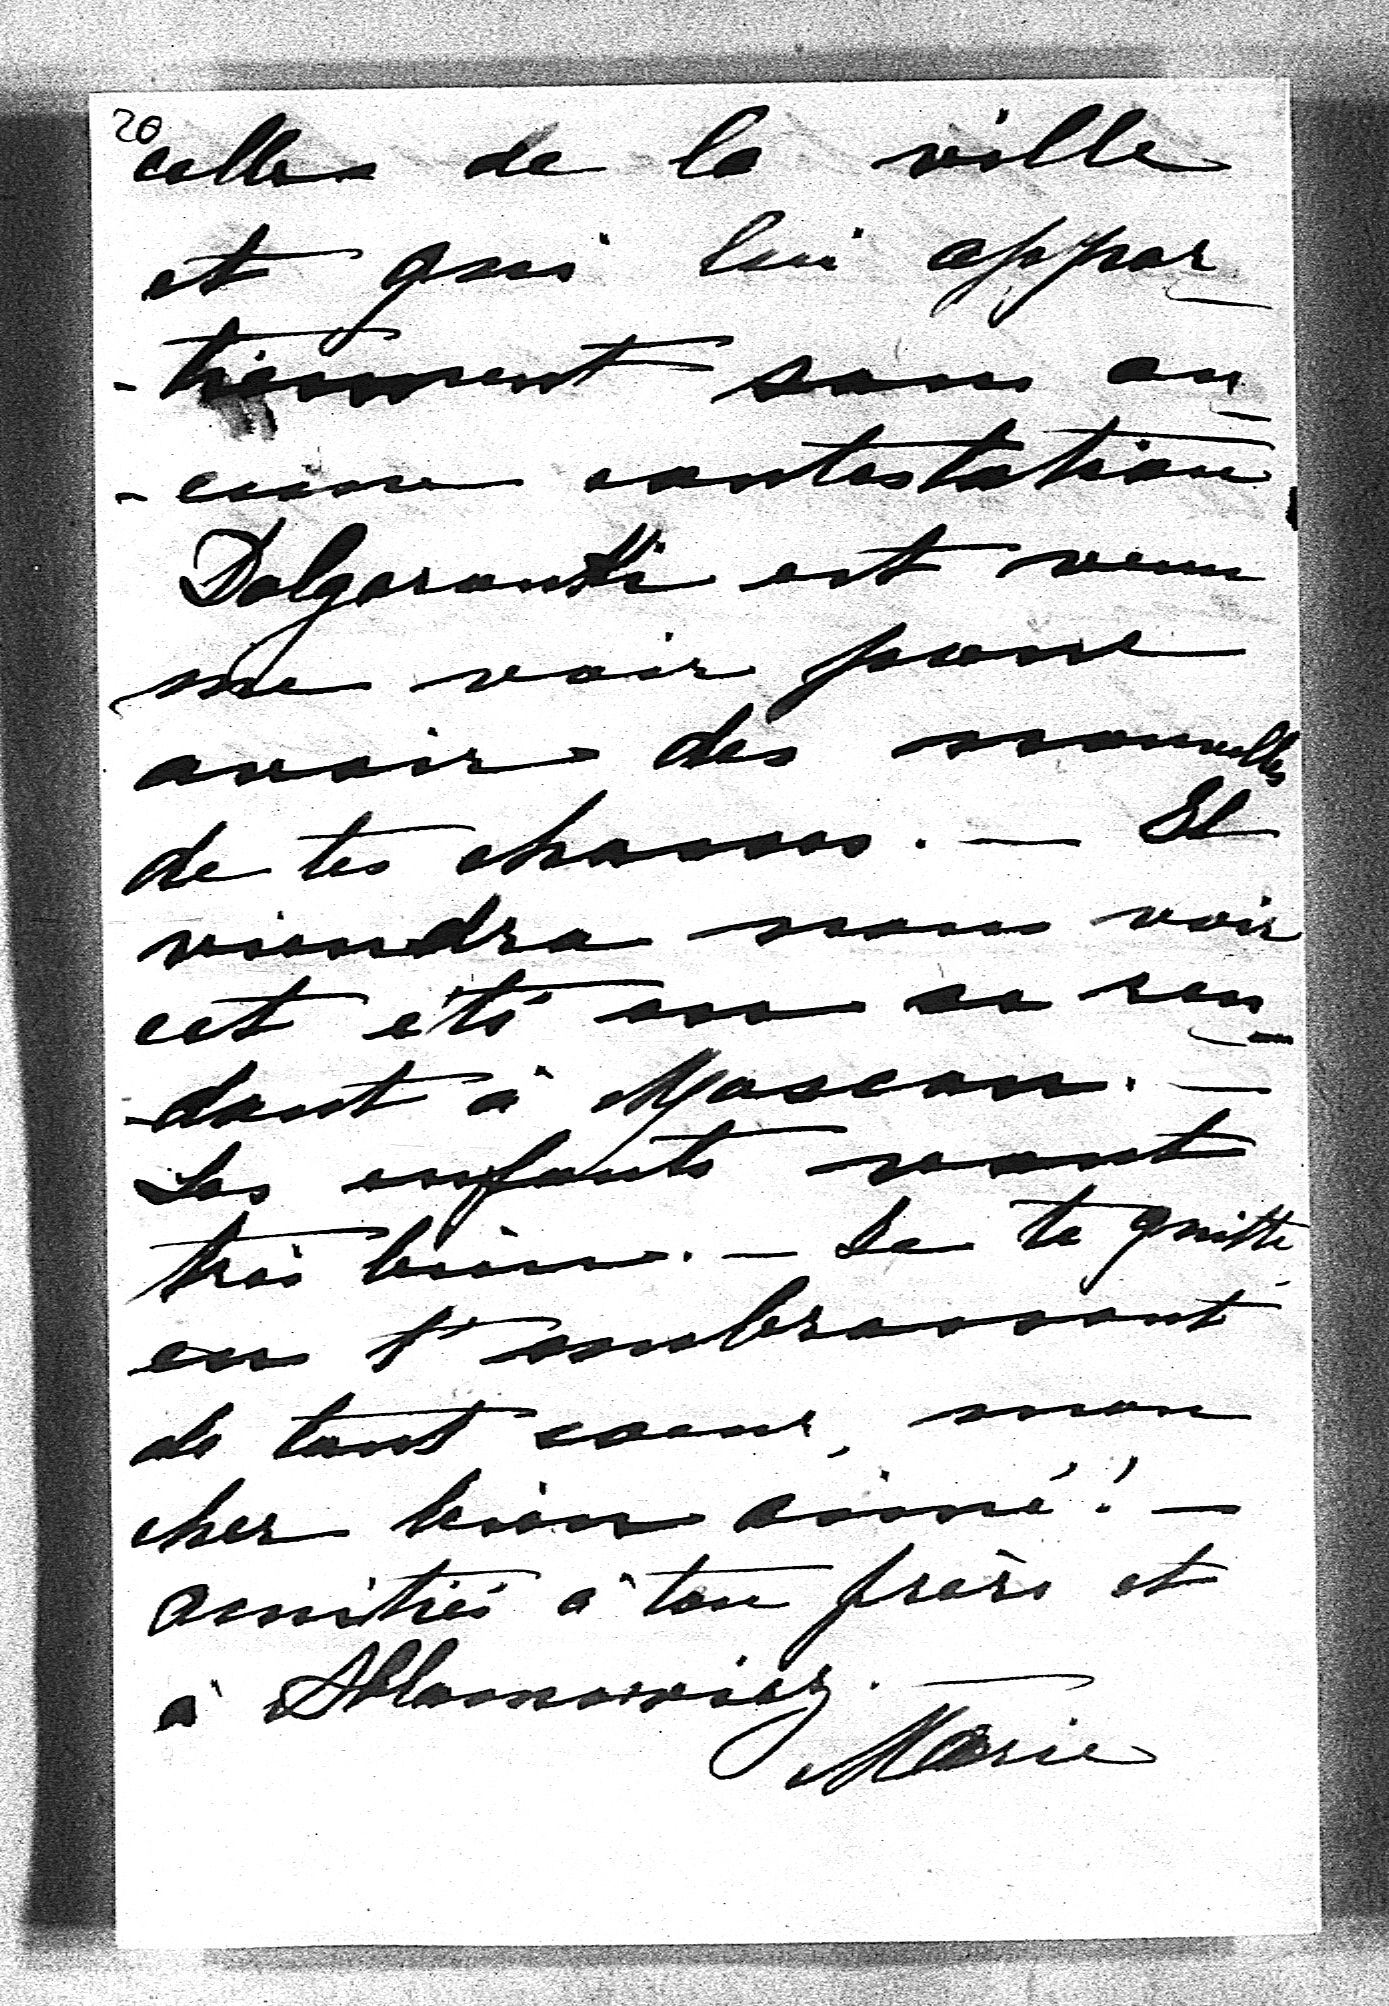 20
celles de la ville
et qui lui appar-
-tiennent sans au-
-cune contestation
Dolgorouki est venu
me voir pour
avoir des nouvelles
de tes chasses. — Il
viendra nous voir
cet été en se ren-
-dant à Moscou. —
Les enfants vont
très bien. — Je te quitte
en t'embrassant
de tout coeur, mon
cher bien aimé! —
Amitiés à ton frère et
à
Marie